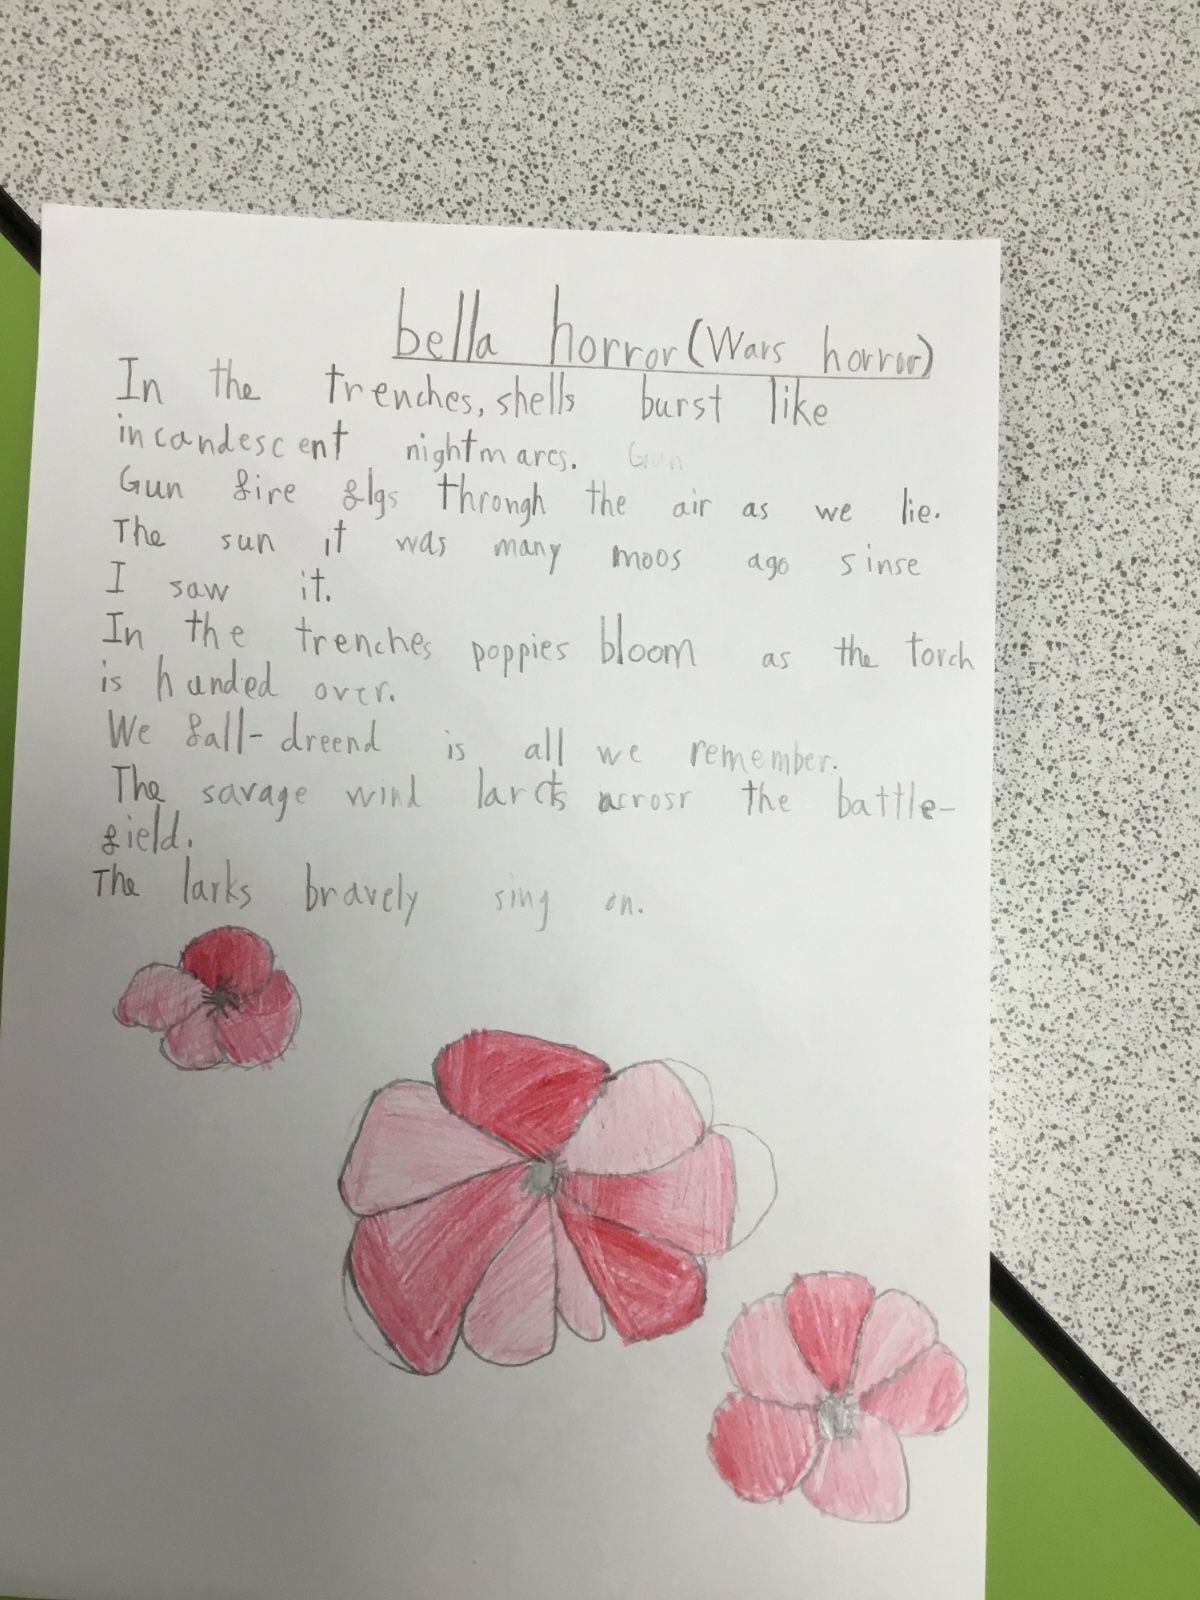 bella horror (Wars horror)
In the trenches, shells burst like
incandescent nightmares. Gun
Gun fire flys through the air as we lie.
The sun it was many moos ago sinse
I saw it.
In the trenches poppies bloom as the torch
is handed over.
We fall- dreend is all we remember.
The savage wind across the battle-
field.
The larks bravely sing on.